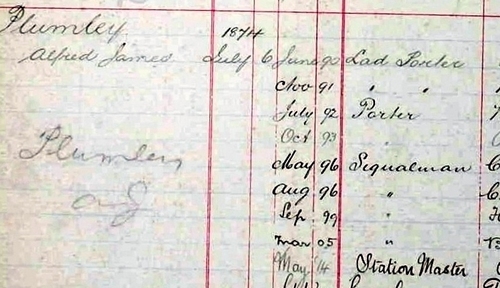 Plumley 1874
Alfred James July 6 June 90 Lad Porter
Nov 91 " "
July 92 Porter
Oct 93
Plumley May 96 Signalman
A J Aug 96 "
Sep 99 "
Mar 05 "
May 14 Station Master